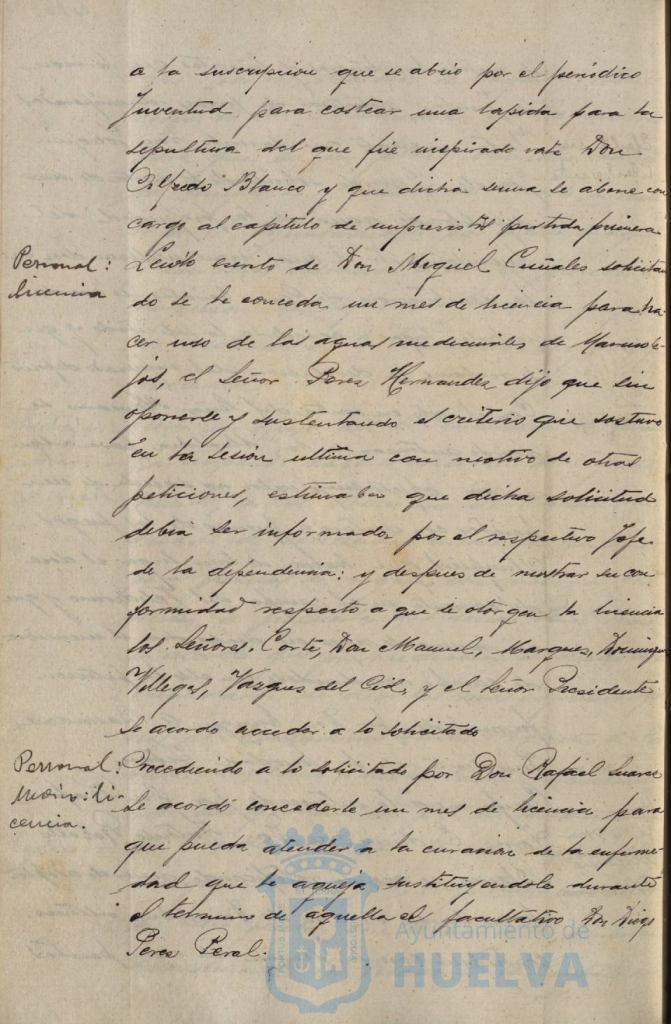 a la suscripcion que se abrio por el periódico
Juventud para costear una lapida para la
sepultura del que fué inspirado vate Don
Alfredo Blanco y que dicha suma se abone con
cargo al capitulo de imprevistos partida primera
Personal:
licencia
Leido escrito de Don Miguel Cuñales solicitan
do se le conceda un mes de licencia para ha-
cer uso de las aguas medicinales de Marmole-
jos, el Señor Perez Hernandez dijo que sin
oponerse y sustentando el criterio que sostuvo
en la sesión ultima con motivo de otras
peticiones, estimaba que dicha solicitud
debia ser informada por el respectivo Jefe
de la dependencia: y despues de mostrar su con
formidad respecto a que se otorgue la licencia
los Señores. Corte, Don Manuel, Marques, Dominguez
Villegas, Vazques del Cid, y el Señor Presidente
se acordo acceder a lo solicitado
Personal:
licencia.
Procediendo a lo solicitado por Don Rafael Suarez
se acordó concederle un mes de licencia para
que pueda atender a la curacion de la enferme-
dad que le aqueja sustituyendole durante
el termino de aquella el facultativo Don Diego
Perez Peral.
Ayuntamiento de
HUELVA